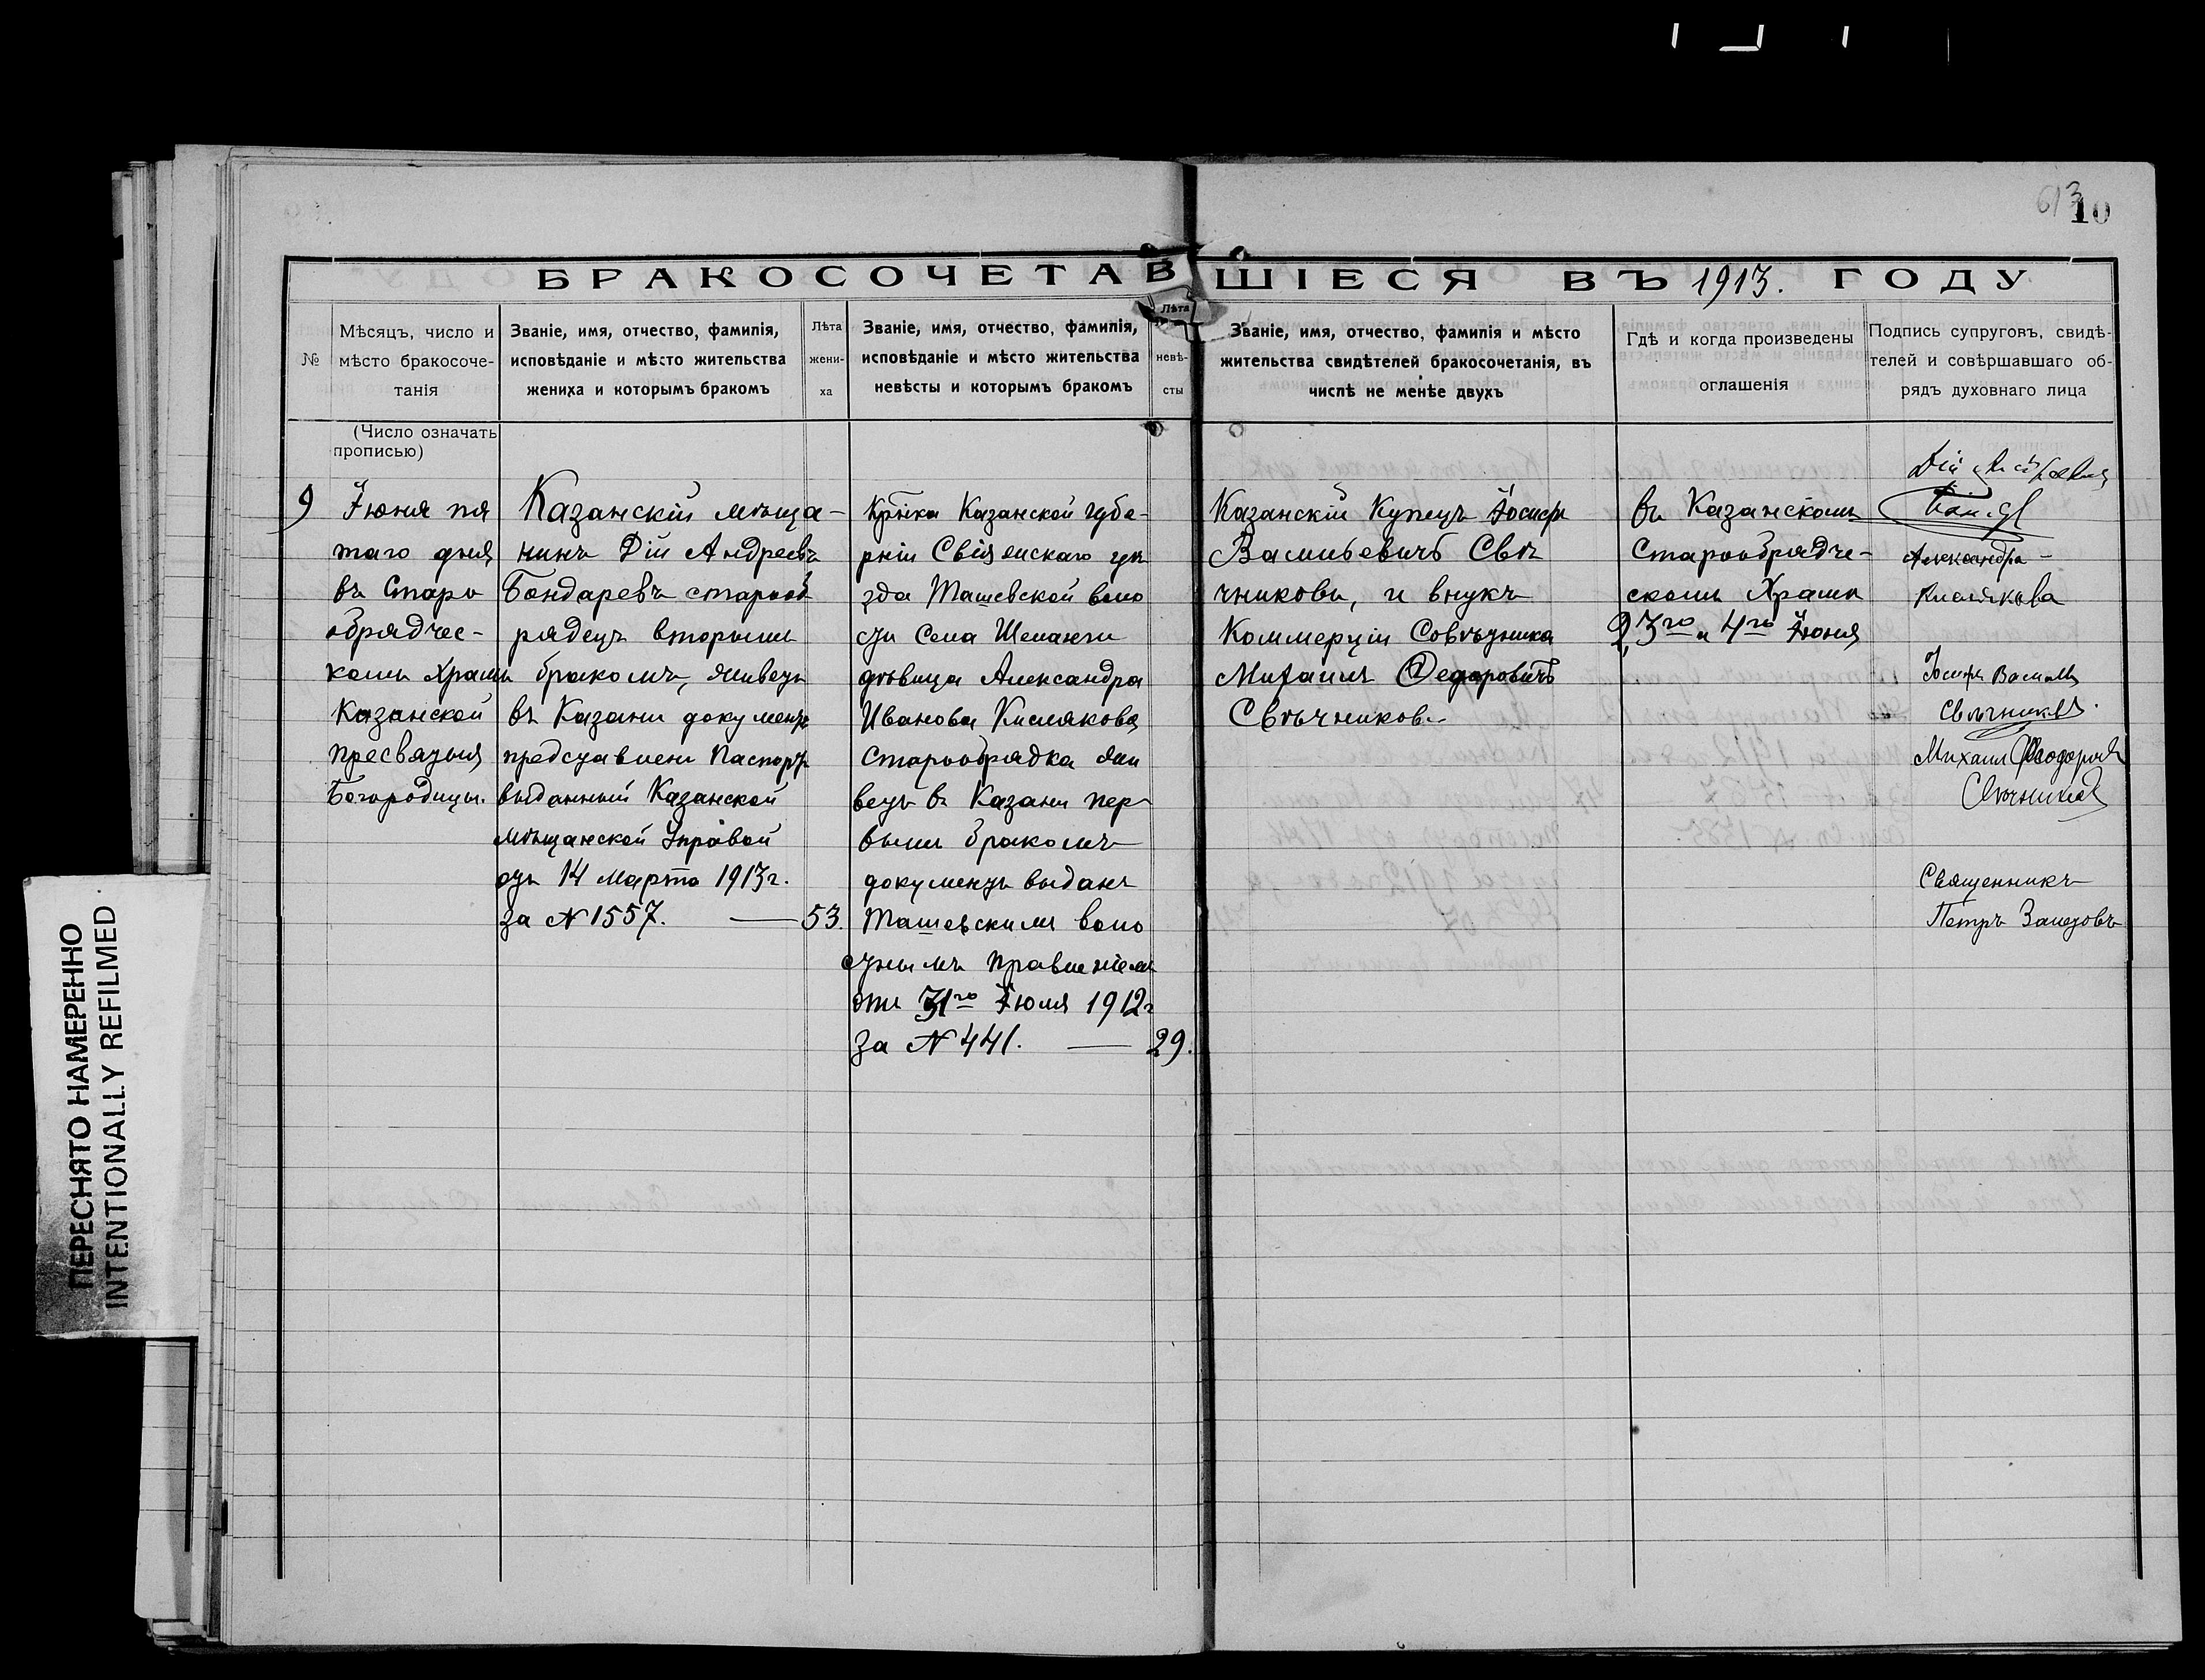 613
10
БРАКОСОЧЕТАВШІЕСЯ ВЪ 1913. ГОДУ
№
Мѣсяцъ, число и
мѣсто бракосоче-
танія
Званіе, имя, отчество, фамилія,
исповѣданіе и мѣсто жительства
жениха и которымъ бракомъ
Лѣта
жени-
ха
Званіе, имя, отчество, фамилія,
исповѣданіе и мѣсто жительства
невѣсты и которымъ бракомъ
Лѣта
невѣ-
сты
Званіе, имя, отчество, фамилія и мѣсто
жительства свидѣтелей бракосочетанія, въ
числѣ не менѣе двухъ
Гдѣ и когда произведены
оглашенія
Подпись супруговъ, свидѣ-
телей и совѣршавшаго об-
рядъ духовнаго лица
(Число означать
прописью)
9
Іюня пя
таго дня
въ Старо
обрядчес-
комъ Храмѣ
Казанской
пресвятыя
Богородицы.
Казанскій мѣща-
нинъ Дій Андреевъ
Бондаревъ старооб
рядецъ вторымъ
бракомъ, живетъ
въ Казани документъ
представленъ Паспортъ
выданный Казанской
мѣщанской Управой
отъ 14 Марта 1913г.
за № 1557. — 53.
Кр̃нка Казанской губе-
рніи Свіяжскаго уѣ
зда Ташевской воло
сти Села Шеланги
дѣвица Александра
Иванова Кислякова
старообрядка жи
ветъ въ Казани пер
вымъ бракомъ
документъ выданъ
Ташевскимъ воло
стнымъ правленіемъ
отъ 31го Іюля 1912г
за № 441. — 29.
Казанскій Купецъ Іосифъ
Васильевичъ Свѣ
чниковъ, и внукъ
Коммерціи Совѣтника
Михаилъ Федоровичъ
Свѣчниковъ.
въ Казанскомъ
Старообрядче-
скомъ Храмѣ
2, 3го и 4го Іюня
Дій
Александра
Кислякова
Іосифъ Василь
Свѣчниковъ.
Михаил Феодоров
Свѣчников
Священникъ
Петръ Залетовъ
ПЕРЕСНЯТО НАМЕРЕННО
INTENTIONALLY REFILMED